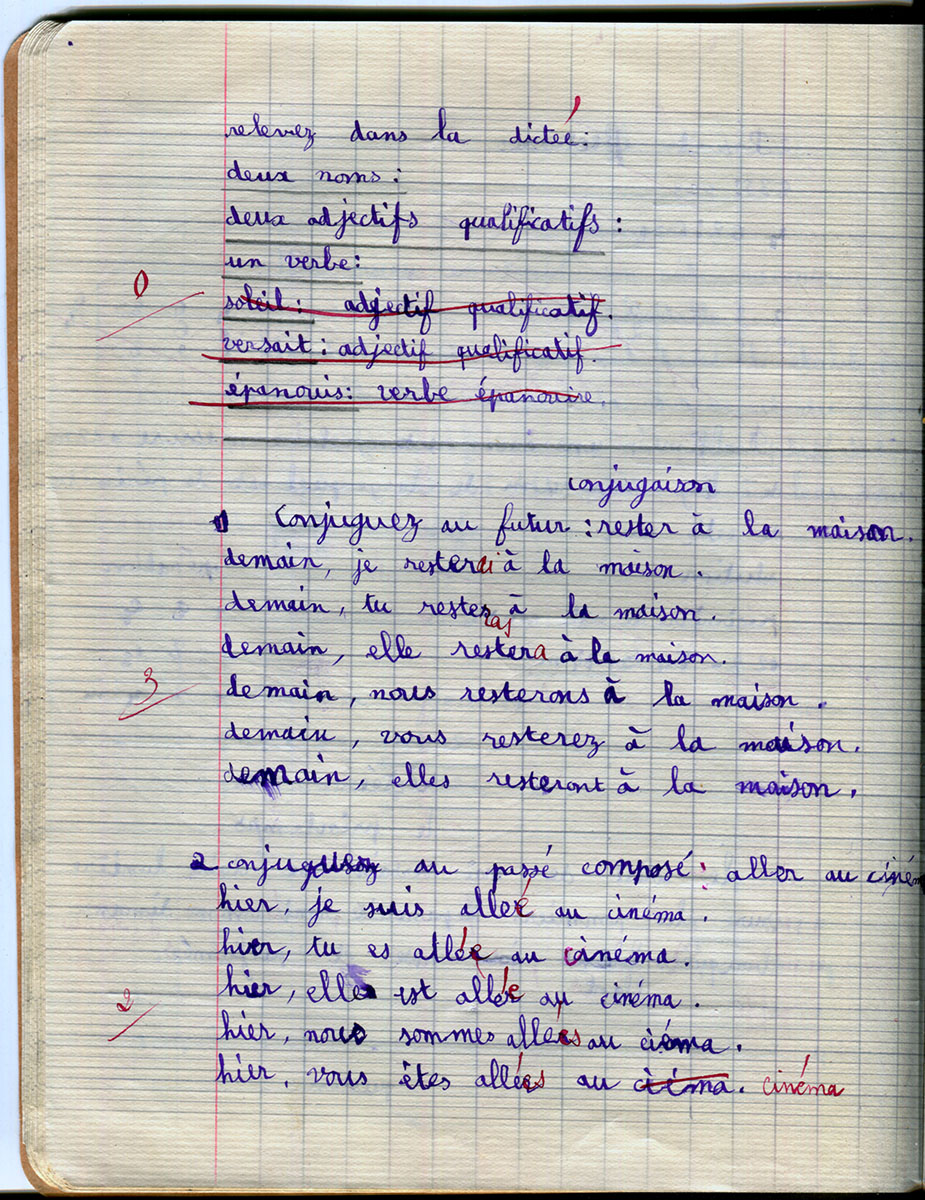 relevez dans la dicteé:
deux noms :
deux adjectifs qualificatifs :
un verbe :
0
soleil : adjectif qualificatif.
versait : adjectif qualificatif.
épanouis : verbe épanouire.
conjugaison
1 Conjuguez au futur : rester à la maison.
demain, je resterai à la maison.
demain, tu resteras à la maison.
demain, elle restera à la maison.
3
demain, nous resterons à la maison.
demain, vous resterez à la maison.
demain, elles resteront à la maison.
2 conjuguez au passé composé : aller au ciném
hier, je suis allée au cinéma.
hier, tu es allée au cinéma.
hier, elle est allée au cinéma.
2
hier, nous sommes allées au ciéma.
hier, vous êtes allées au ciéma. cinéma